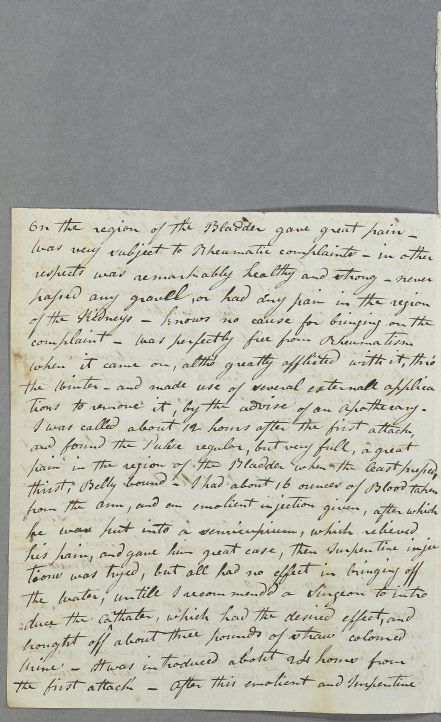 On the region of the Bladder gave great pain -
was very subject to Rheumatic complaints - in other
respects was remarkably healthy and strong - never
passed any gravell, or had any pain in the region
of the Kidneys - knows no cause for bringing on the
complaint - was perfectly free from Rheumatism
when it came on, altho greatly afflicted with it, this
the Winter - and made use of several externall applica
tions to remove it, by the advise of an Apothecary -
I was called about 12 hours after the first attack,
and found the Pulse regular, but very full, a great
pain in the region of the Bladder when the least press'd,
thirst, Belly bound - I had about 16 ounces of Blood taken
from the Arm, and an emolient injection given, after which
he was put into a semicupium, which relieved
his pain, and gave him great ease, then Turpentine injec
tions was tryed, but all had no effect in bringing off
the water, untill I recommended a Surgeon to intro
duce the Cathater, which had the desired effect, and
brought off about three pounds of straw coloured
Urine - It was introduced about 24 hours from
the first attack - after this emolient and Turpentine